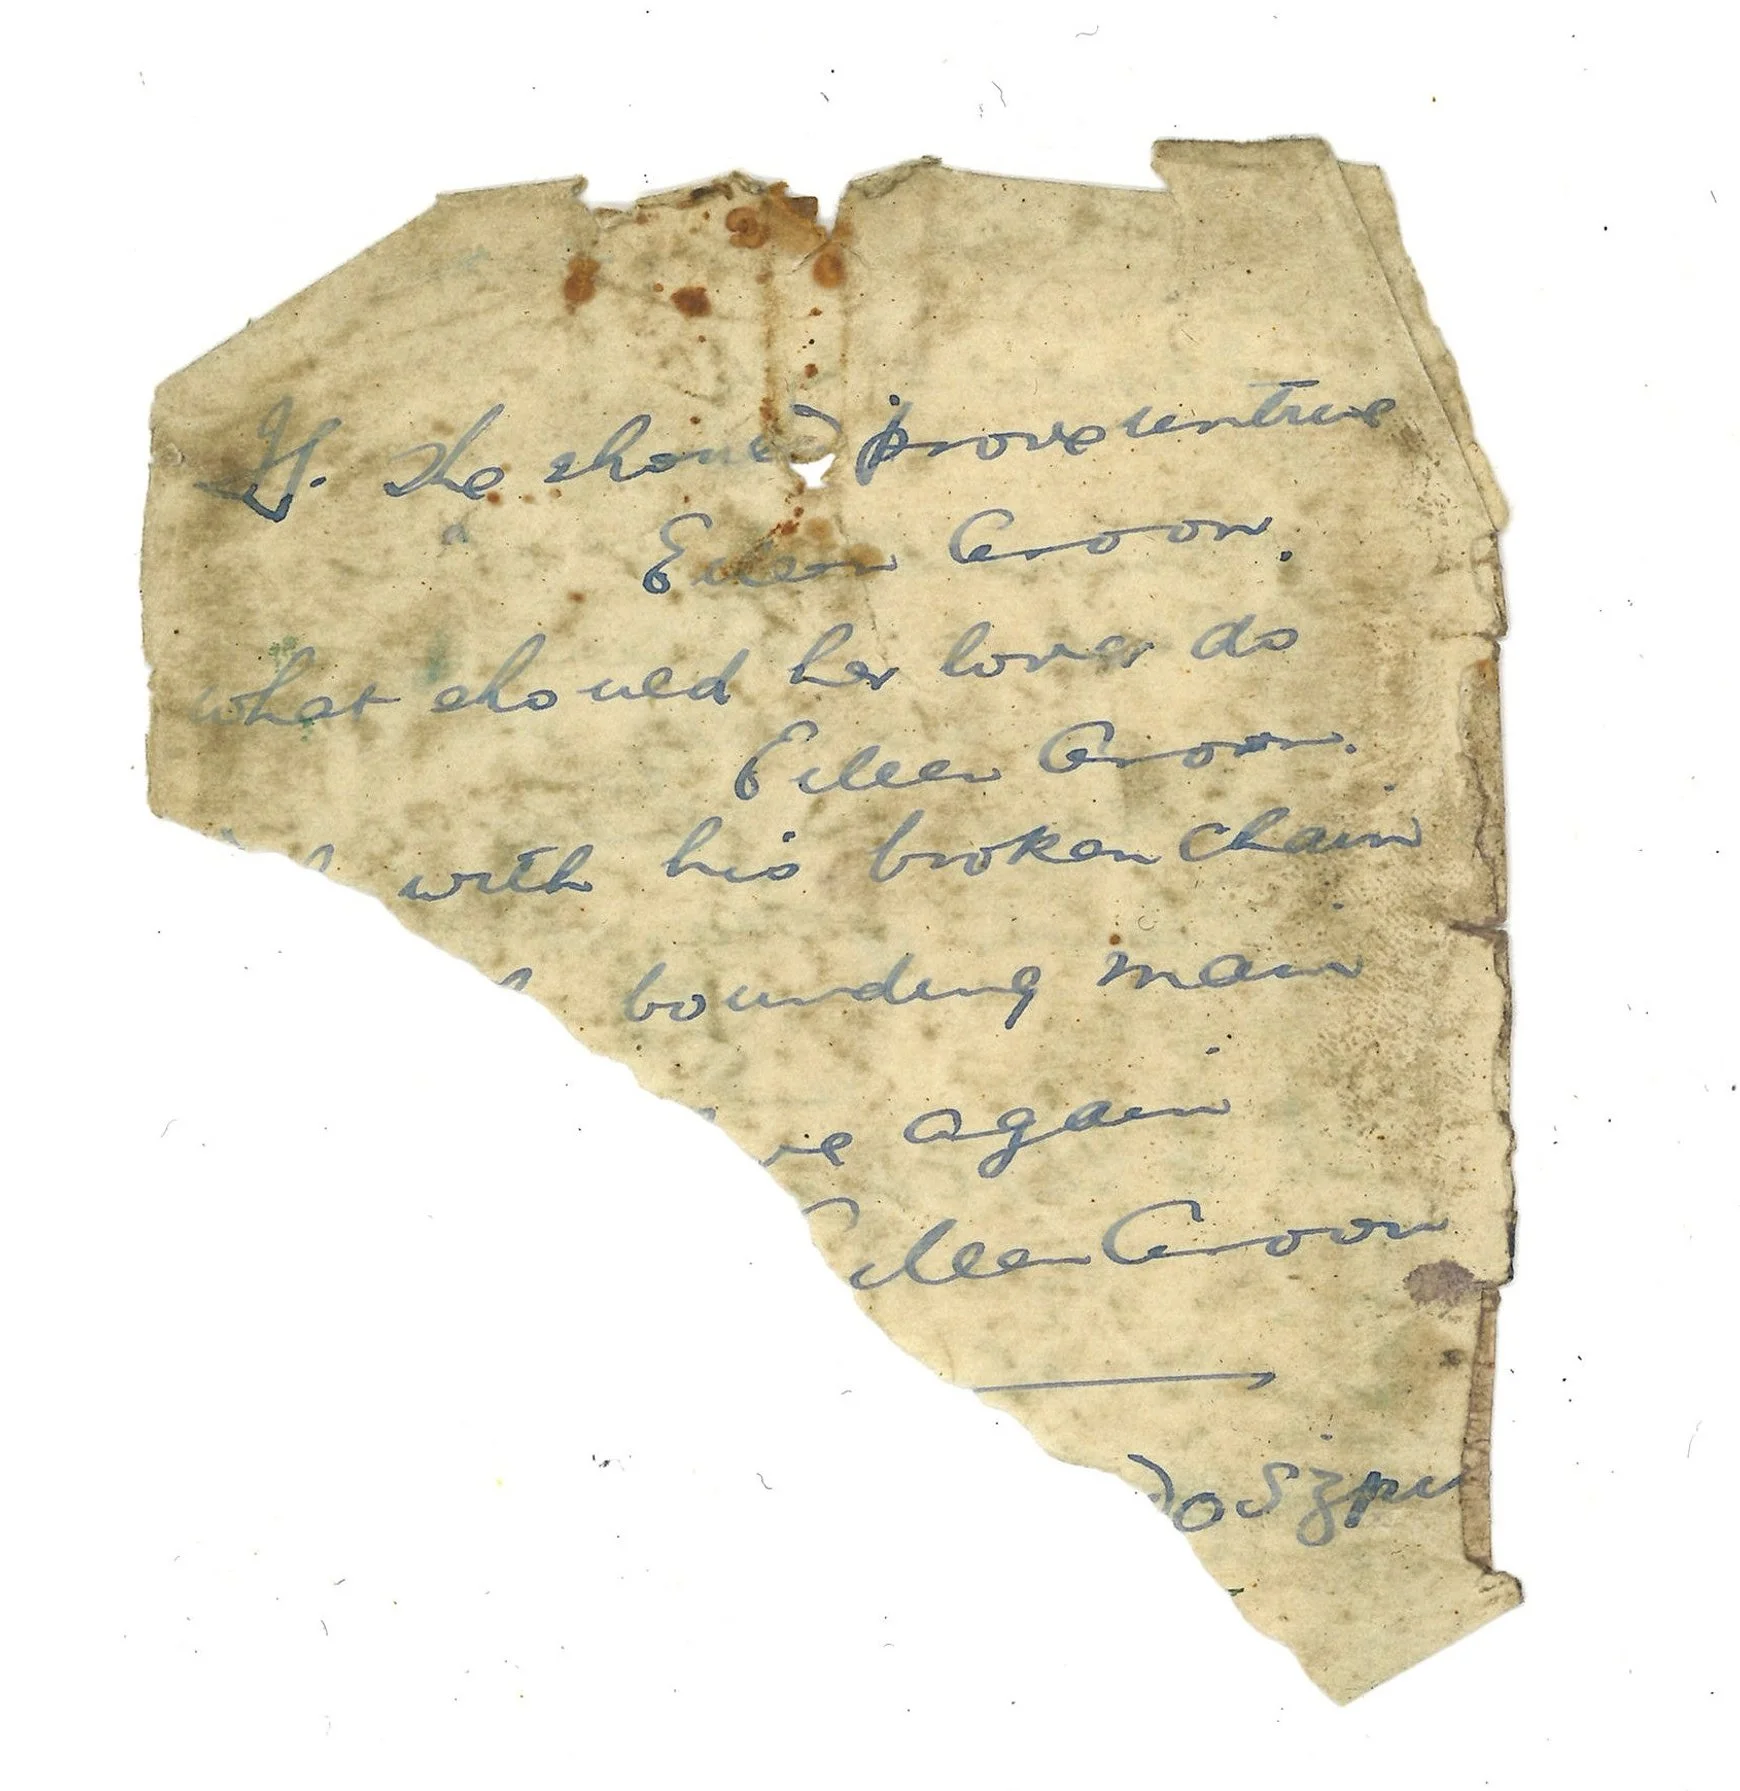 If. she should prove untrue
Eileen Aroon.
what should her lover do
Eileen Aroon.
with his broken chain
bounding main
again
Eileen Aroon